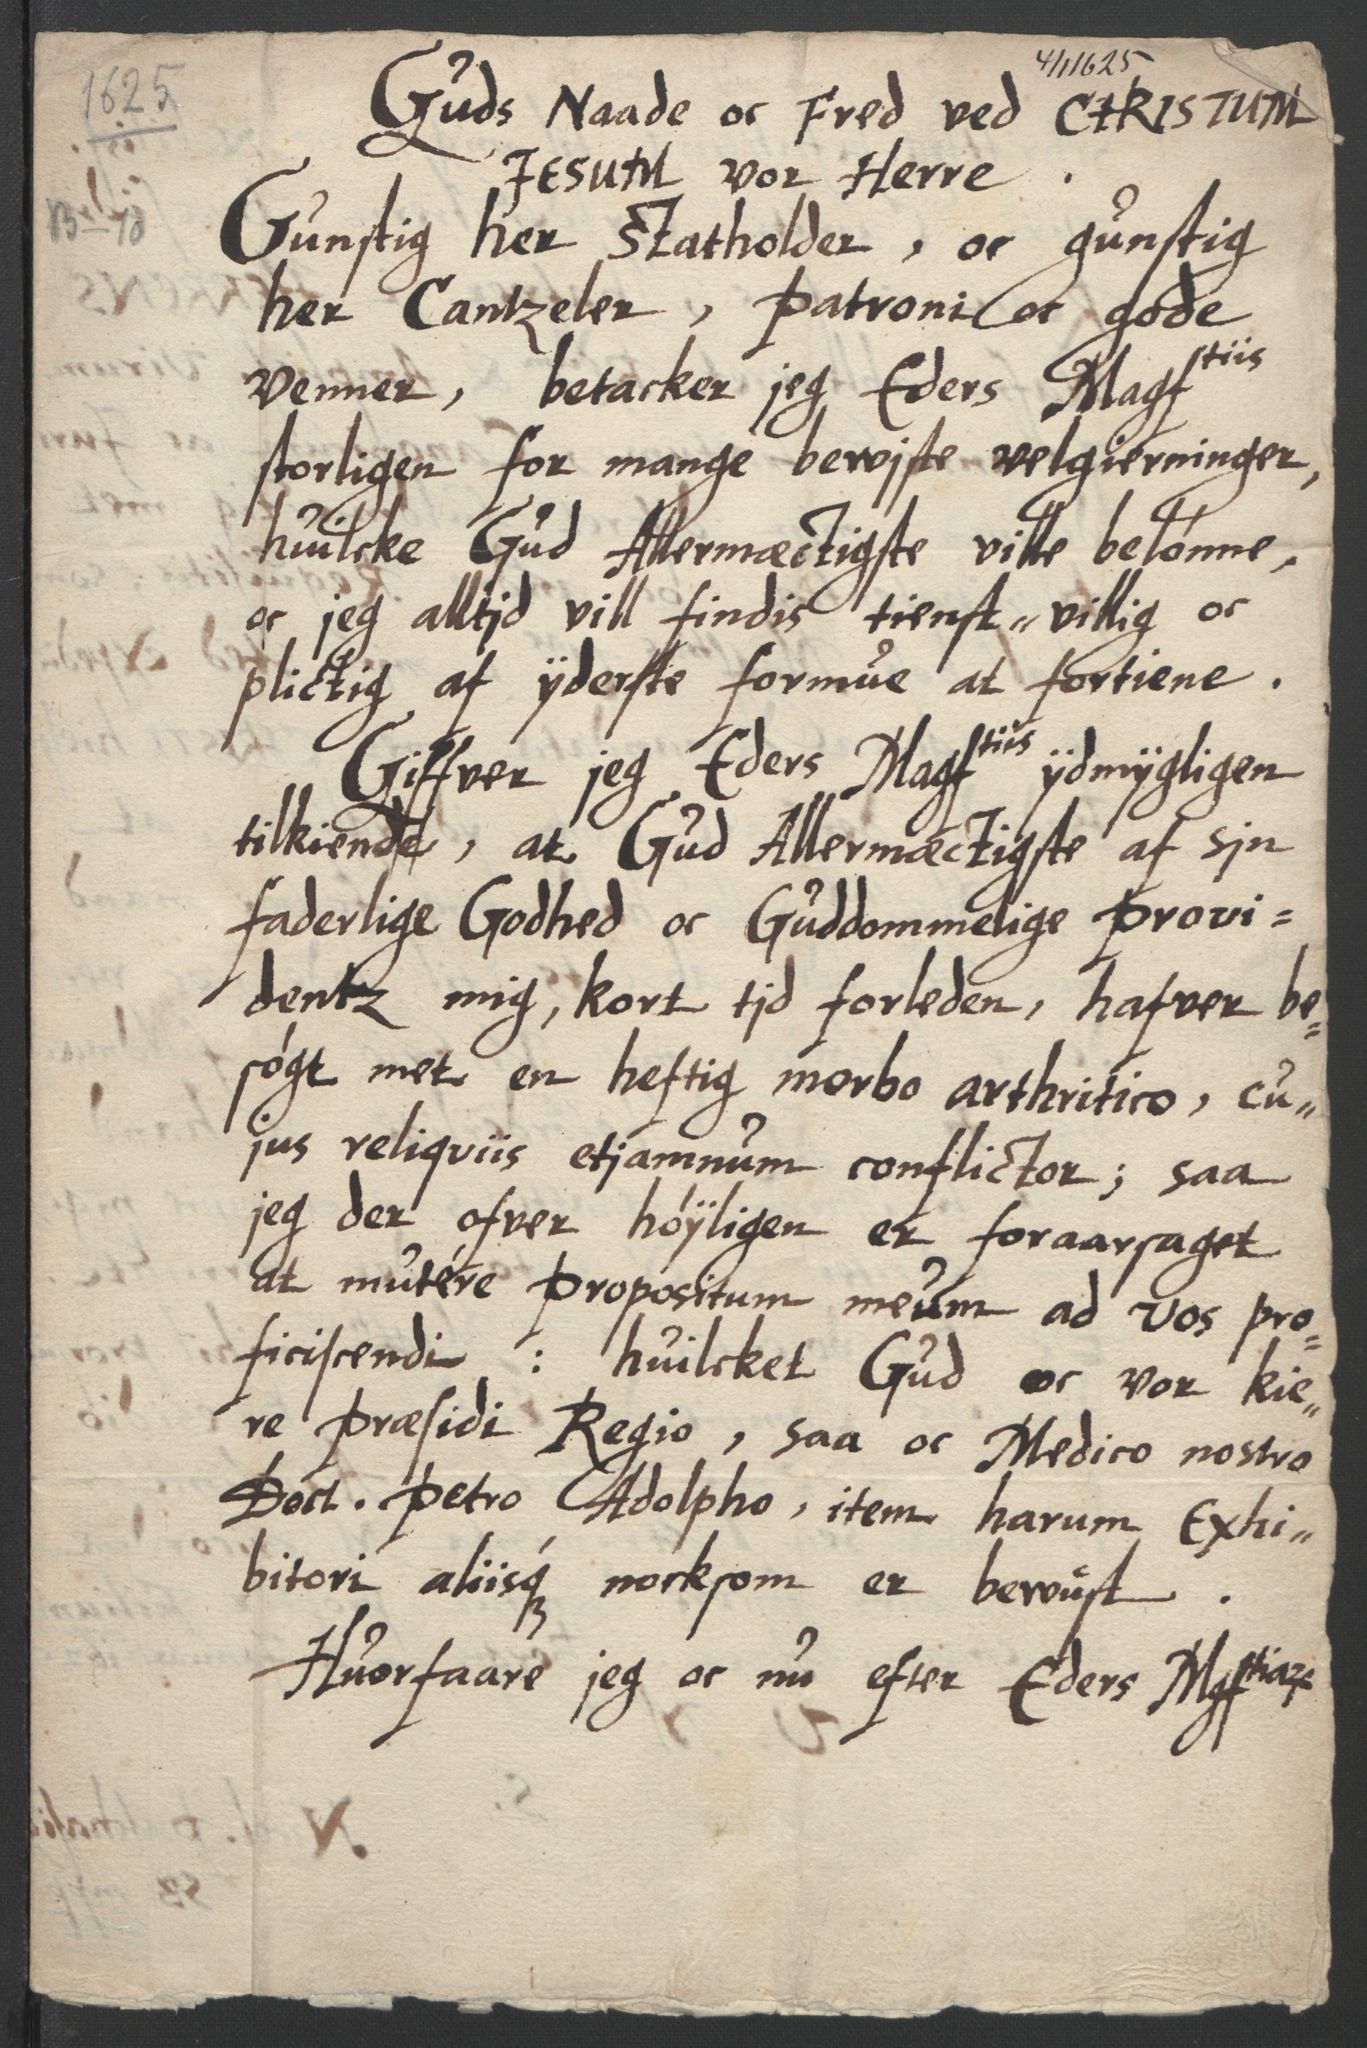 1625
4/1 1625
Guds Naade oc Fred ved CHRISTUM
JESUM vor Herre .
Gunstig her Statholder, oc gunstig
her Cantzeler, patroni oc gode
venner, betacker jeg Eders Magf tiis
storligen for mange bevijste velgierninger,
huilcke Gud Allermæctigste ville belönne,
oc jeg alltjd vill findis tienst„villig oc
plictig af ÿderste formue at fortiene .
Giffver jeg Eders Magf tiis ÿdmÿgligen
tilkiende, at Gud Allermæctigste af sjn
faderlige Godhed oc Guddommelige provi=
dentz mig, kort tjd forleden, hafver be=
sógt met en heftig morbo arthritico, cu„
jus reliqviis etjamnum conflictor; saa
jeg der ofver hóÿligen er foraarsaget
at mutére propositum meum ad vos pro„
ficiscendi : huilcket Gud oc vor kie„
re præsidi Regio, saa oc Medico nostro
Doct. Petro Adolpho, item harum Exhi„
bitori aliisq́ꝫ nocksom er bevvust .
Huorfaare jeg oc nu efter Eders Mgf tiarꝭ